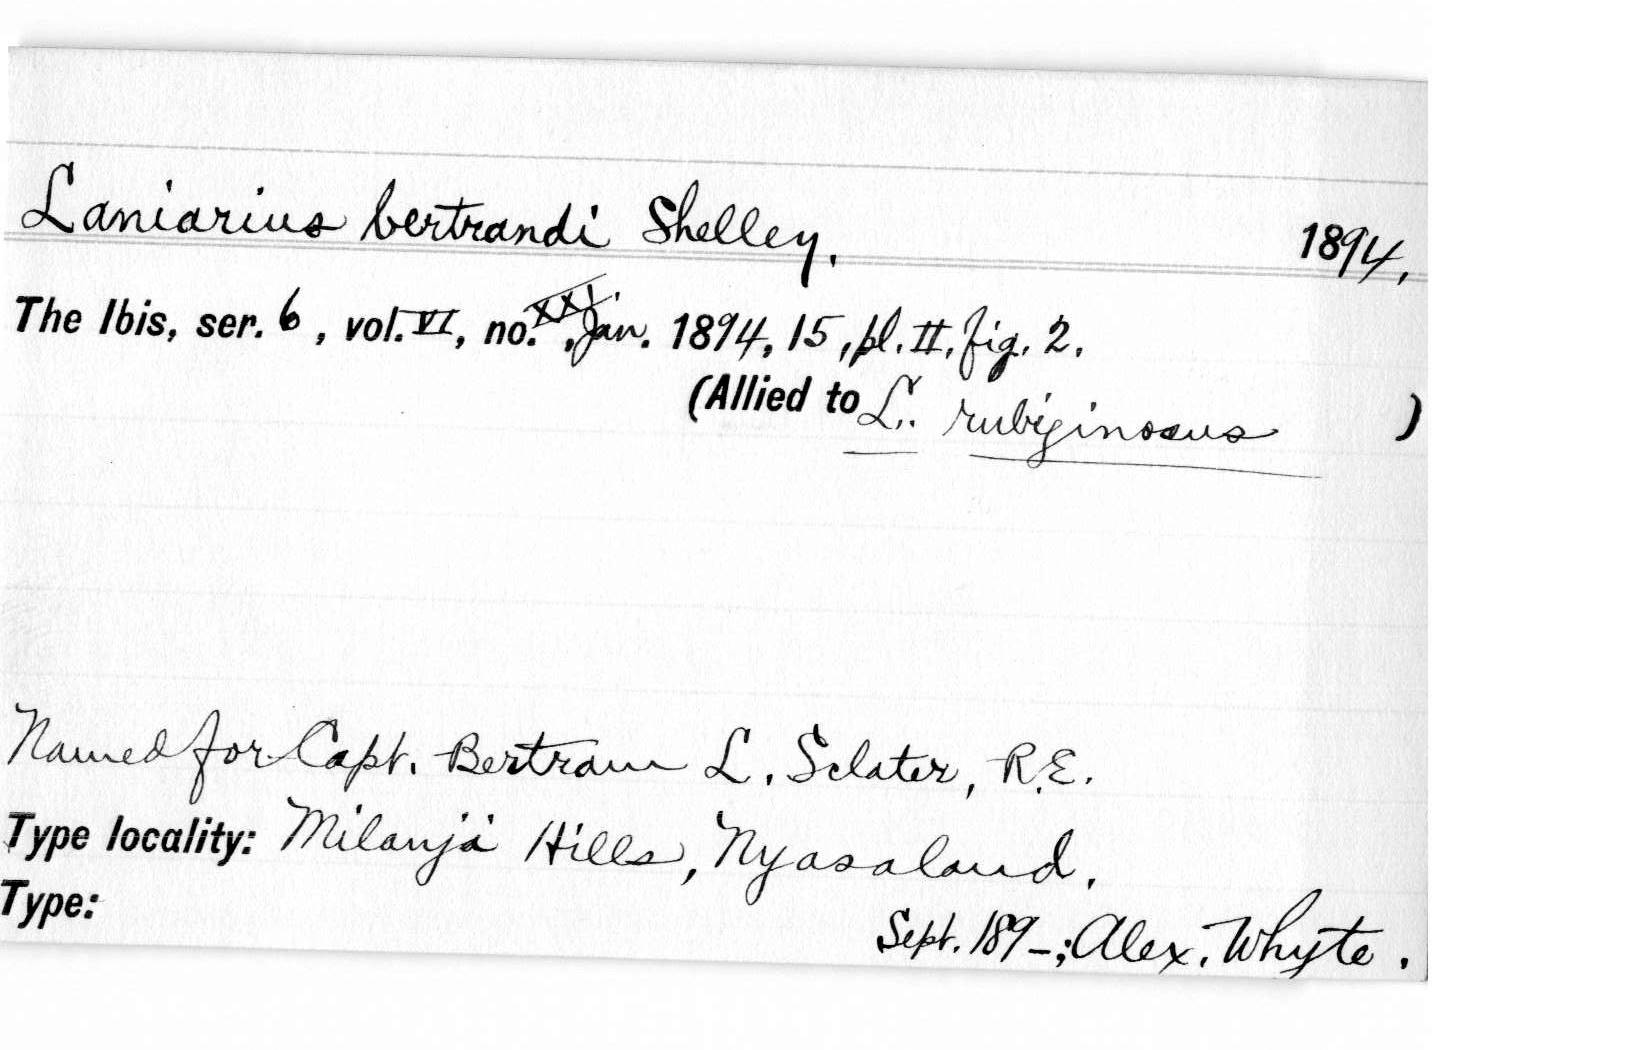 Laniarius bertrandi Shelley. 1894.
The Ibis, ser. 6, vol. VI, no. XXI., Jan. 1894, 15, pl. II, fig. 2.
(Allied to L. rubiginosus )
Named for Capt. Bertram L. Sclater, R.E.
Type locality: Milanji Hills, Nyasaland.
Type:
Sept. 189–; Alex. Whyte.